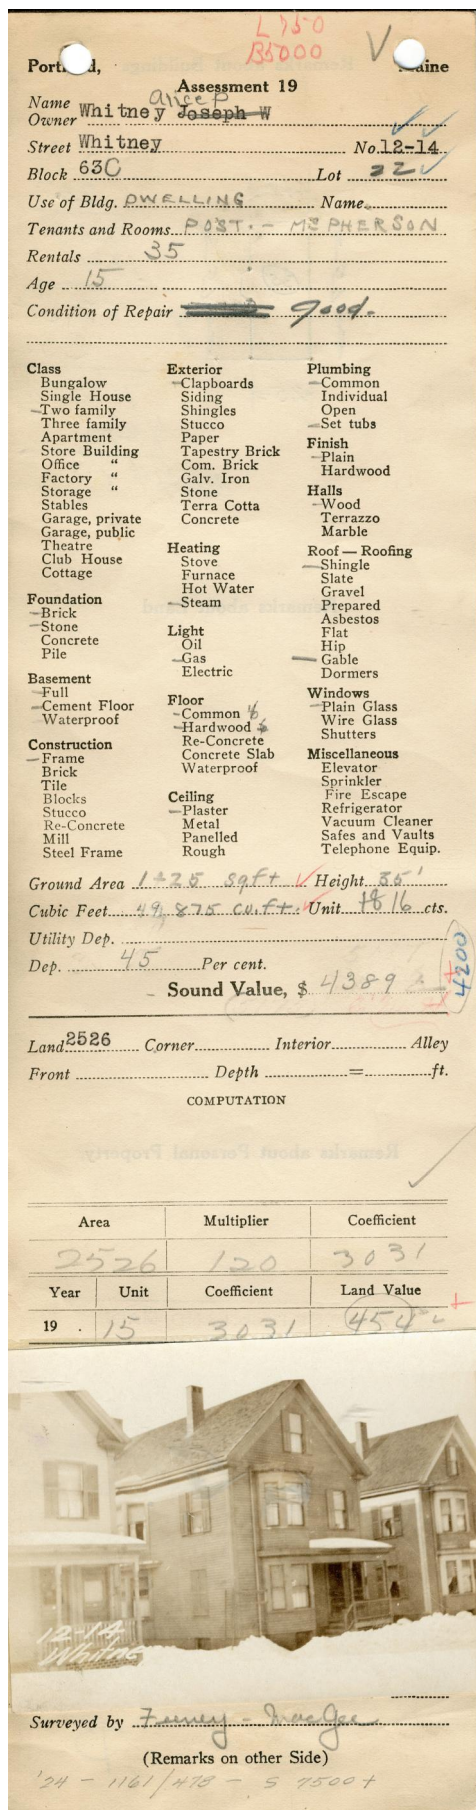 L 750
B 5000
Portland, Maine
Assessment 19
Alice P
Name Owner Whitney Joseph W
Street Whitney No. 12-14
Block 63C Lot 22
Use of Bldg. DWELLING Name
Tenants and Rooms POST. - McPHERSON
Rentals 35
Age 15
Condition of Repair good.
Class
Bungalow
Single House
Two family
Three family
Apartment
Store Building
Office "
Factory "
Storage "
Stables
Garage, private
Garage, public
Theatre
Club House
Cottage
Foundation
Brick
Stone
Concrete
Pile
Basement
Full
Cement Floor
Waterproof
Construction
Frame
Brick
Tile
Blocks
Stucco
Re-Concrete
Mill
Steel Frame
Exterior
Clapboards
Siding
Shingles
Stucco
Paper
Tapestry Brick
Com. Brick
Galv. Iron
Stone
Terra Cotta
Concrete
Heating
Stove
Furnace
Hot Water
Steam
Light
Oil
Gas
Electric
Floor
Common
Hardwood
Re-Concrete
Concrete Slab
Waterproof
Ceiling
Plaster
Metal
Panelled
Rough
Plumbing
Common
Individual
Open
Set tubs
Finish
Plain
Hardwood
Halls
Wood
Terrazzo
Marble
Roof — Roofing
Shingle
Slate
Gravel
Prepared
Asbestos
Flat
Hip
Gable
Dormers
Windows
Plain Glass
Wire Glass
Shutters
Miscellaneous
Elevator
Sprinkler
Fire Escape
Refrigerator
Vacuum Cleaner
Safes and Vaults
Telephone Equip.
Ground Area 1425 sq ft Height 35'
Cubic Feet 49,875 cu. ft. Unit 16 cts.
Utility Dep.
Dep. 45 Per cent.
Sound Value, $ 4389
4200
Land 2526 Corner Interior Alley
Front Depth = ft.
COMPUTATION
Area Multiplier Coefficient
2526 120 3031
Year Unit Coefficient Land Value
19 . 15 3031 454
12-14
Whitney
Surveyed by Feeney - MacGee
(Remarks on other Side)
'24 - 1161/478 - S 7500+